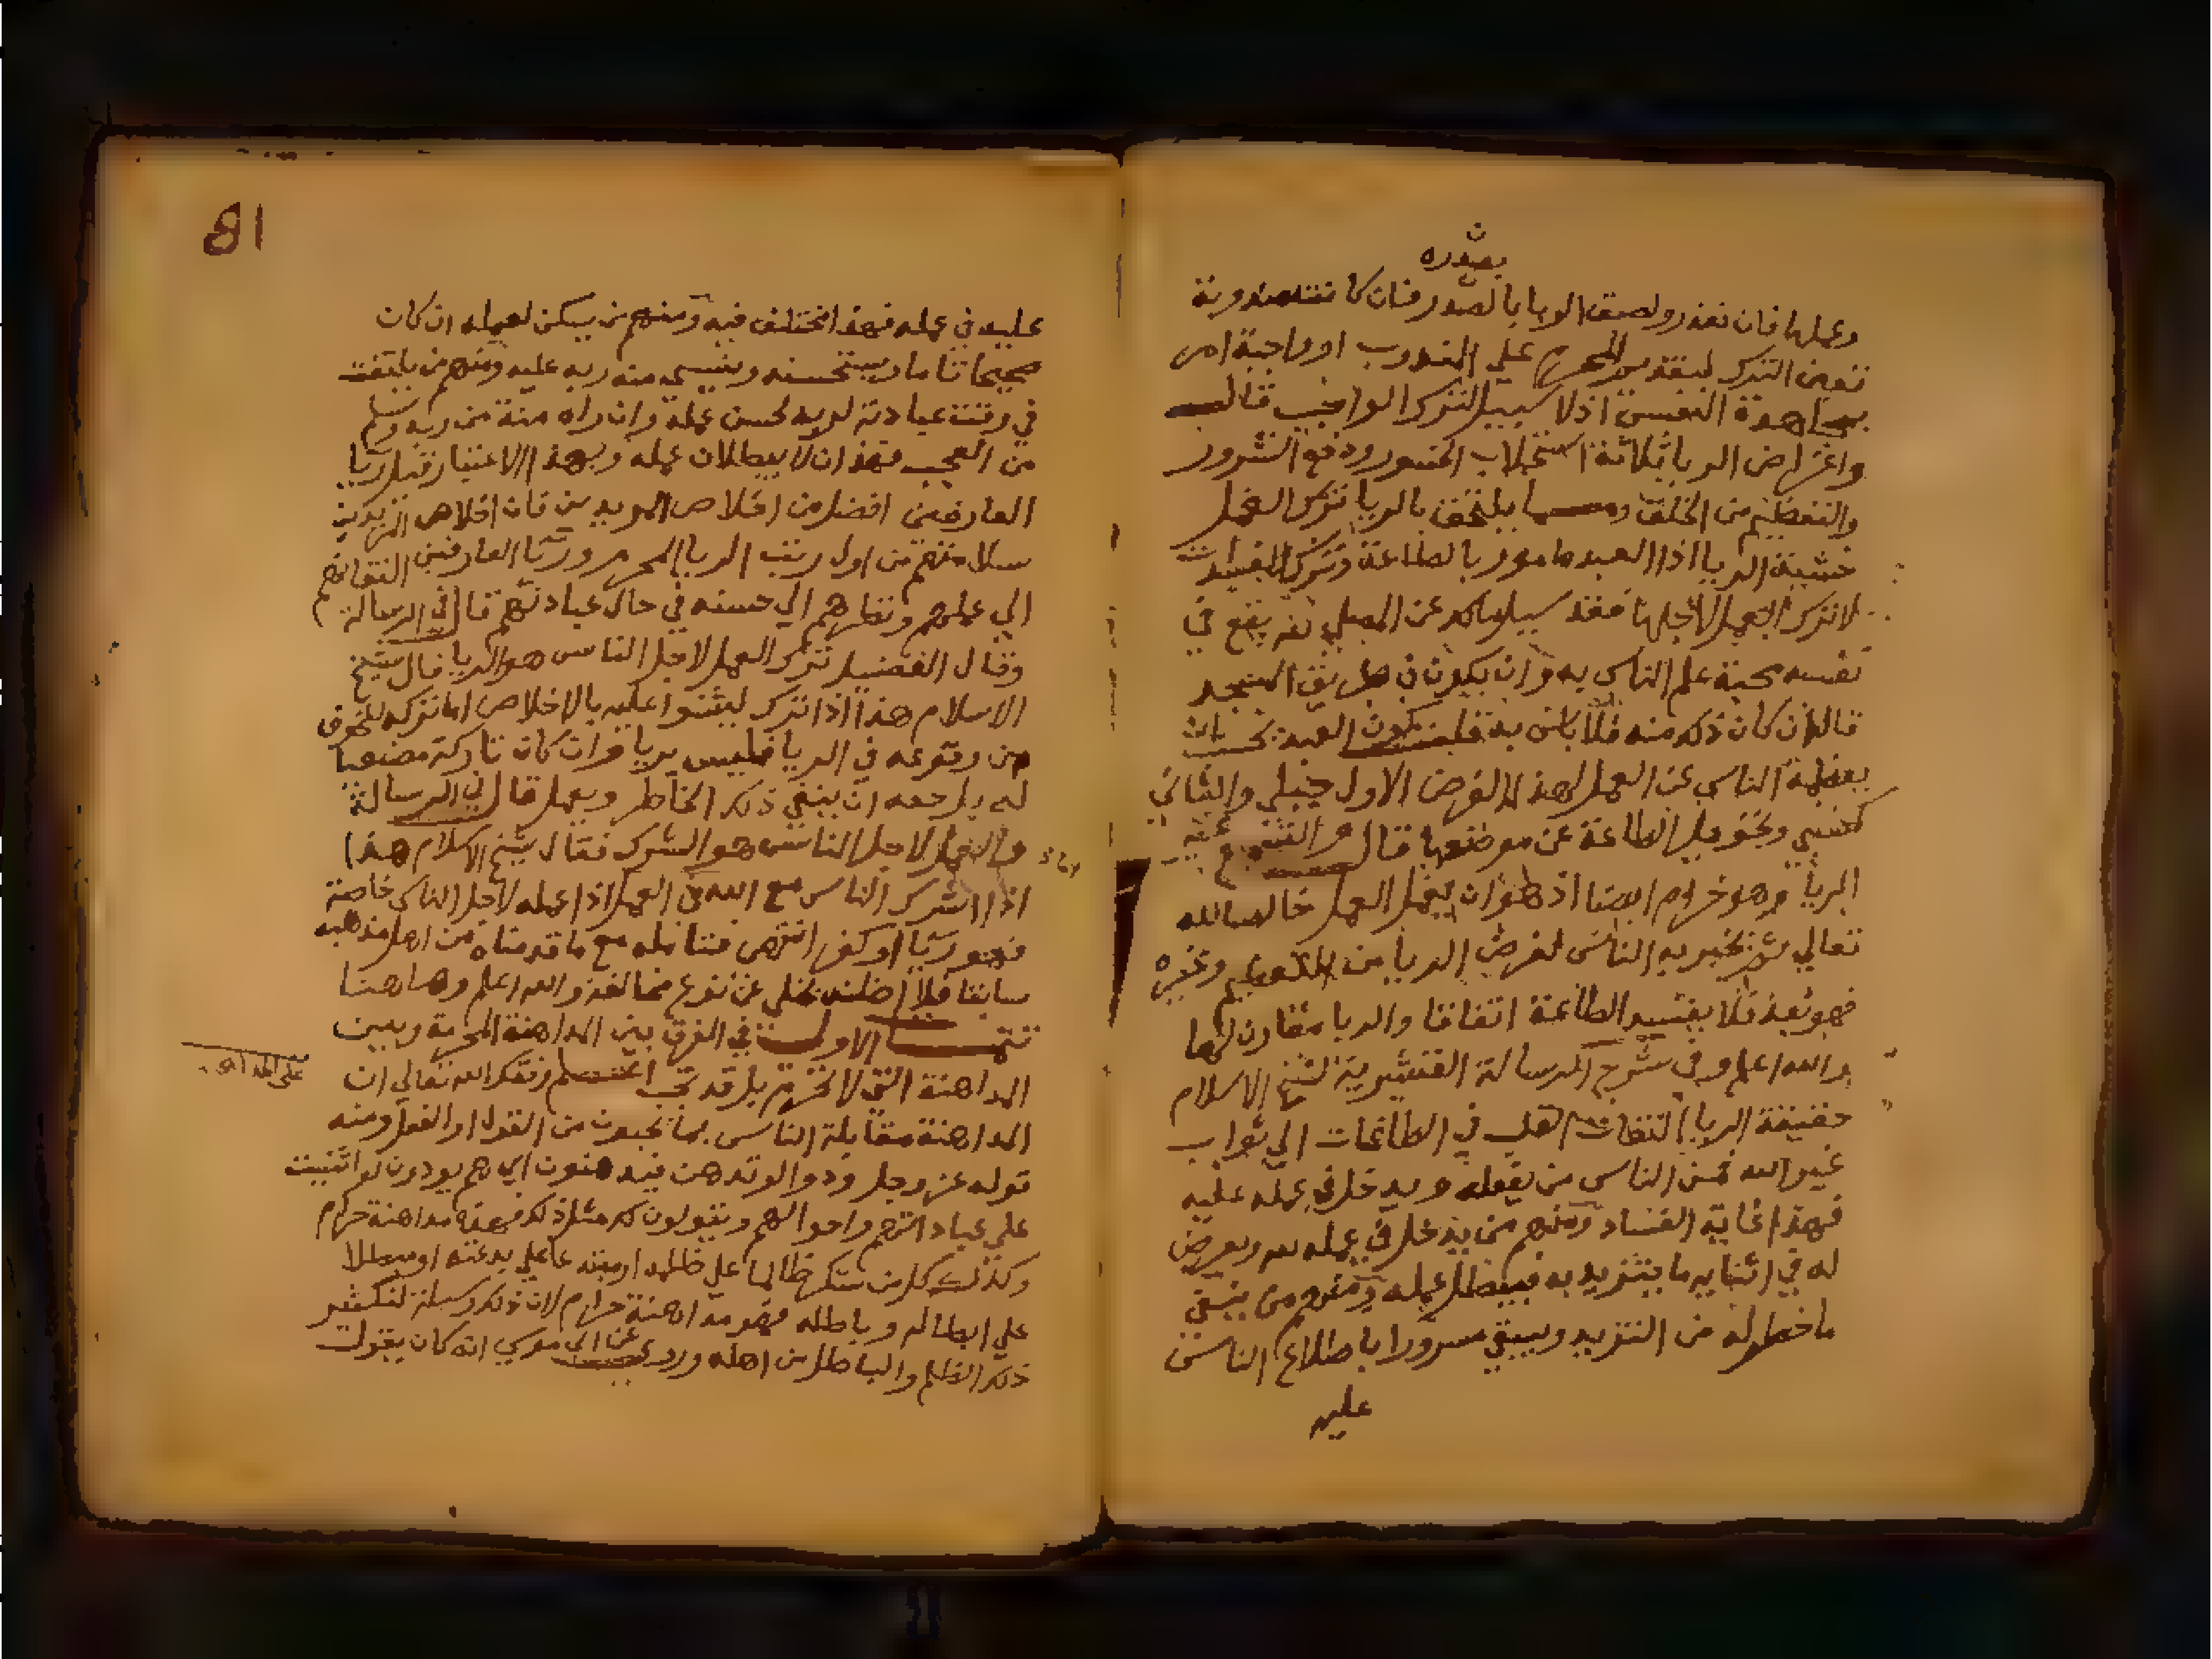 بصدره
وعملها فان تعذر ولصق الريا بالصدر فان كانت مندوبة
تعين الترك لتقديم المحرم على المندوب او واجبة امر
بمجاهدة النفس اذ لا سبيل لترك الواجب قالب
واغراض الريا ثلاثة استجلاب الخيور ودفع الشرور
والتعظيم من الخلق ومما يلتحق بالريا ترك العمل
خشية الريا اذ العبد مامور بالطاعة وترك المفسد
لا ترك العمل لاجلها فقد سيل مالك عن المصلي لله يقع في
نفسه محبة علم الناس به وان يكون في طريق المسجد
قال ان كان ذلك منه فلا باس به
بعظمة الناس عن العمل لهذا الغرض الاول جبلي والثاني
كسبي وتحويل الطاعة عن موضعها قال
الريا وهو حرام ايضا اذ هو ان يعمل العمل خالصا لله
تعالى ثم يخبر به الناس لغرض الريا من التعظيم وغيره
فهو بعد فلا يفسد الطاعة اتفاقا والريا مقارن لها
والله اعلم وفي شرح الرسالة القشيرية لشيخ الاسلام
حقيقة الريا التفات القلب في الطاعات الي ثواب
غير الله فمن الناس من يفعله ويدخل في عمله عليه
فهذا غاية الفساد ومنهم من يدخل في عمله لله ويعرض
له في اثنايه ما يتزيد به فيبطل عمله ومنهم من ينفي
ما خطر له من التزيد ويبقي مسرورا باطلاع الناس
عليه
81
عليه في عمله فهذا اختلف فيه ومنهم من يسكن لعمله ان كان
صحيحا تاما ويستحسنه وينسي منة ربه عليه ومنهم من يلتفت
في وقت عبادته لربه لحسن عمله وان راه منة من ربه وسلم
من العجب فهذان لا يبطلان عمله وبهذا الاعتبار قيل ريا
العارفين افضل من اخلاص المريدين فان اخلاص المريدين
سلامتهم من اول رتب الريا المحرم وريا العارفين التفاتهم
الي عملهم ونظرهم الي حسنه في حال عبادتهم قال في الرسالة
وقال الفضيل ترك العمل لاجل الناس هو الريا قال شيخ
الاسلام هذا اذا ترك ليثنوا عليه بالاخلاص اما تركه للخوف
من وقوعه في الريا فليس بريا وان كان تاركه مضيعا
له بل حقه ان ينفي ذلك الخاطر ويعمل قال في الرسالة
والعمل لاجل الناس هو الشرك فقال شيخ الاسلام هذا
اذا اشرك الناس مع الله في العمل اذا عمله لاجل الناس خاصة
فهو ريا او كفر انتهى فتامله مع ما قدمناه من اهل مذهبه
سابقا فلا اظنه يخلي عن نوع مخالفة والله اعلم وهاهنا
تتمات الاولى في الفرق بين المداهنة المحرمة وبين
المداهنة التي لا تحرم بل قد تجب اعلم وفقك الله تعالى ان
المداهنة مقابلة الناس بما يحبون من القول او الفعل ومنه
قوله عز وجل ودوا لو تدهن فيدهنون اي هم يودون لو اثنيت
علي عباداتهم واحوالهم ويقولون لك مثل ذلك فهذه مداهنة حرام
وكذلك كل من شكر ظالما علي ظلمه او مبتدعا علي بدعته او مبطلا
علي ابطاله وباطله فهو مداهنة حرام لان ذلك وسيلة لتكثير
ذلك الظلم والباطل من اهله وورد عن ابي موسي انه كان يقول